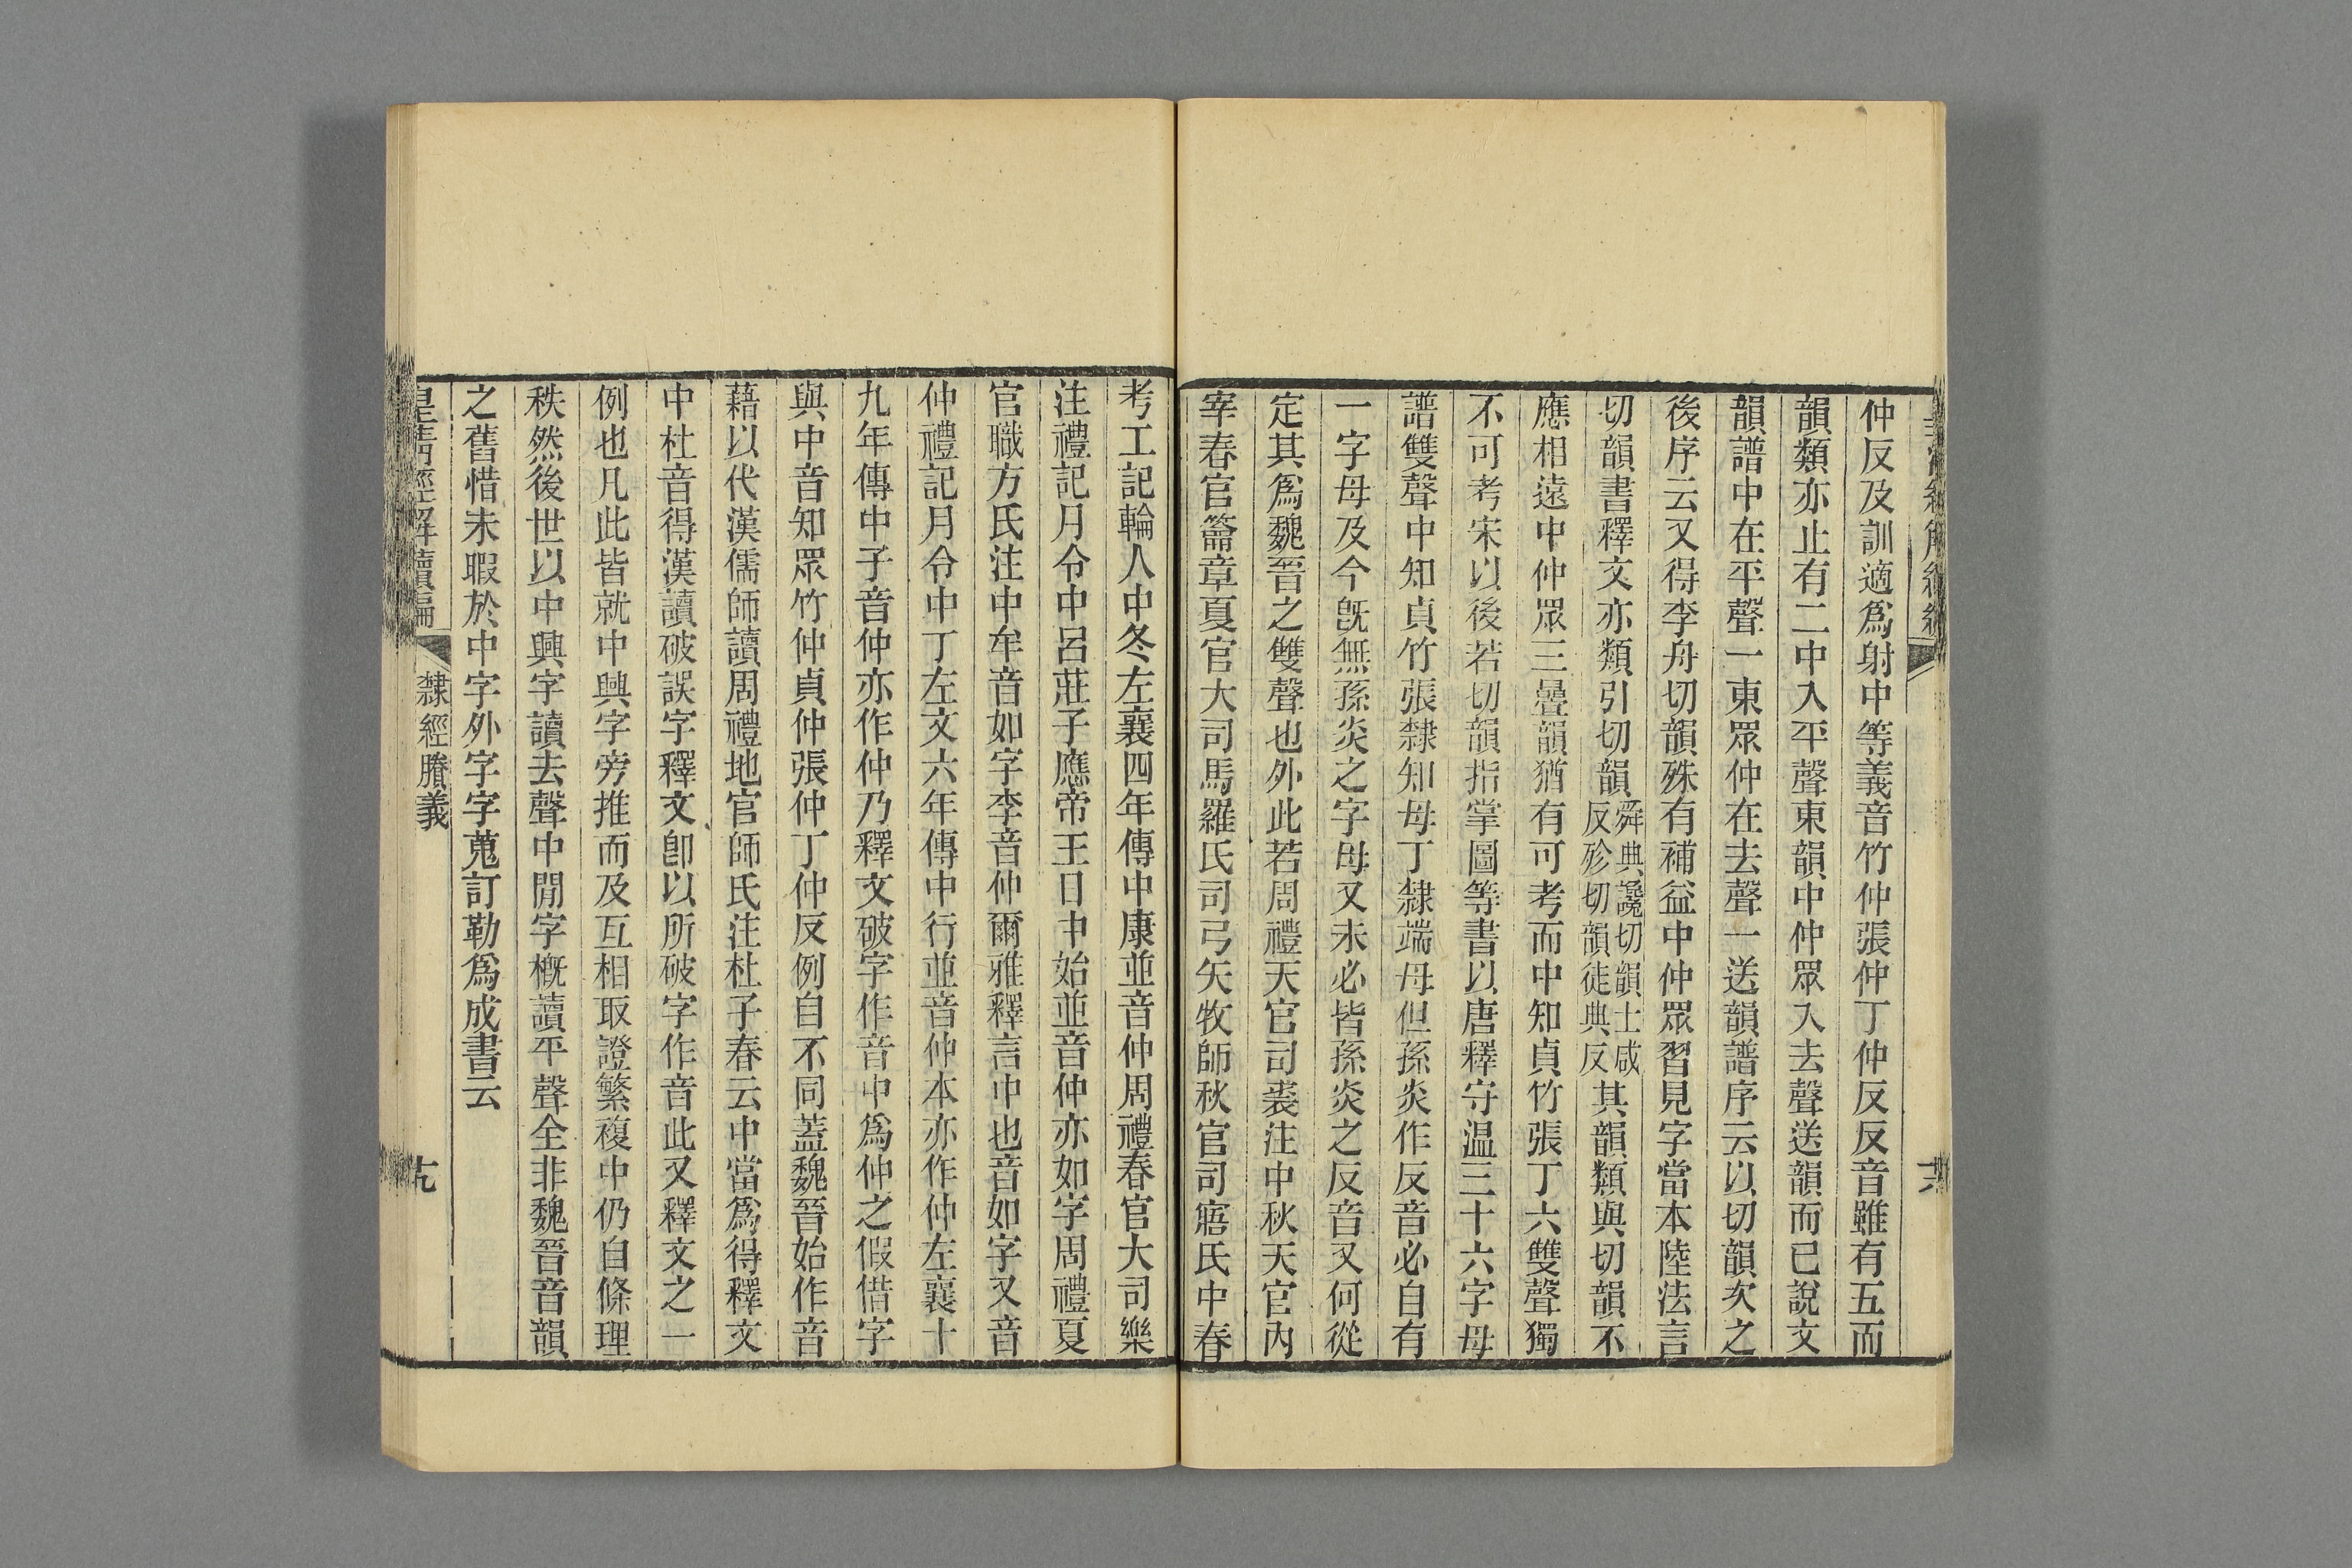 仲反及訓適爲射中等義音竹仲張仲丁仲反反音雖有五而
韻類亦止有二中入平聲東韻中仲眾入去聲送韻而已說文
韻譜中在平聲一東眾仲在去聲一送韻譜序云以切韻次之
後序云又得李舟切韻殊有補益中仲眾習見字當本陸法言
切韻書釋文亦類引切韻舜典讒切韻士咸反殄切韻徒典反其韻類與切韻不
應相遠中仲眾三疊韻猶有可考而中知貞竹張丁六雙聲獨
不可考宋以後若切韻指掌圖等書以唐釋守温三十六字母
譜雙聲中知貞竹張隸知母丁隸端母但孫炎作反音必自有
一字母及今旣無孫炎之字母又未必皆孫炎之反音又何從
定其爲魏晉之雙聲也外此若周禮天官司裘注中秋天官內
宰春官籥章夏官大司馬羅氏司弓矢牧師秋官司寤氏中春
考工記輪人中冬左襄四年傳中康並音仲周禮春官大司樂
注禮記月令中呂莊子應帝王日中始並音仲亦如字周禮夏
官職方氏注中牟音如字李音仲爾雅釋言中也音如字又音
仲禮記月令中丁左文六年傳中行並音仲本亦作仲左襄十
九年傳中子音仲亦作仲乃釋文破字作音中爲仲之假借字
與中音知眾竹仲貞仲張仲丁仲反例自不同蓋魏晉始作音
藉以代漢儒師讀周禮地官師氏注杜子春云中當爲得釋文
中杜音得漢讀破誤字釋文卽以所破字作音此又釋文之一
例也凡此皆就中興字旁推而及互相取證繁複中仍自條理
秩然後世以中興字讀去聲中閒字槪讀平聲全非魏晉音韻
之舊惜未暇於中字外字字蒐訂勒爲成書云
皇淸經解續編
隸經賸義